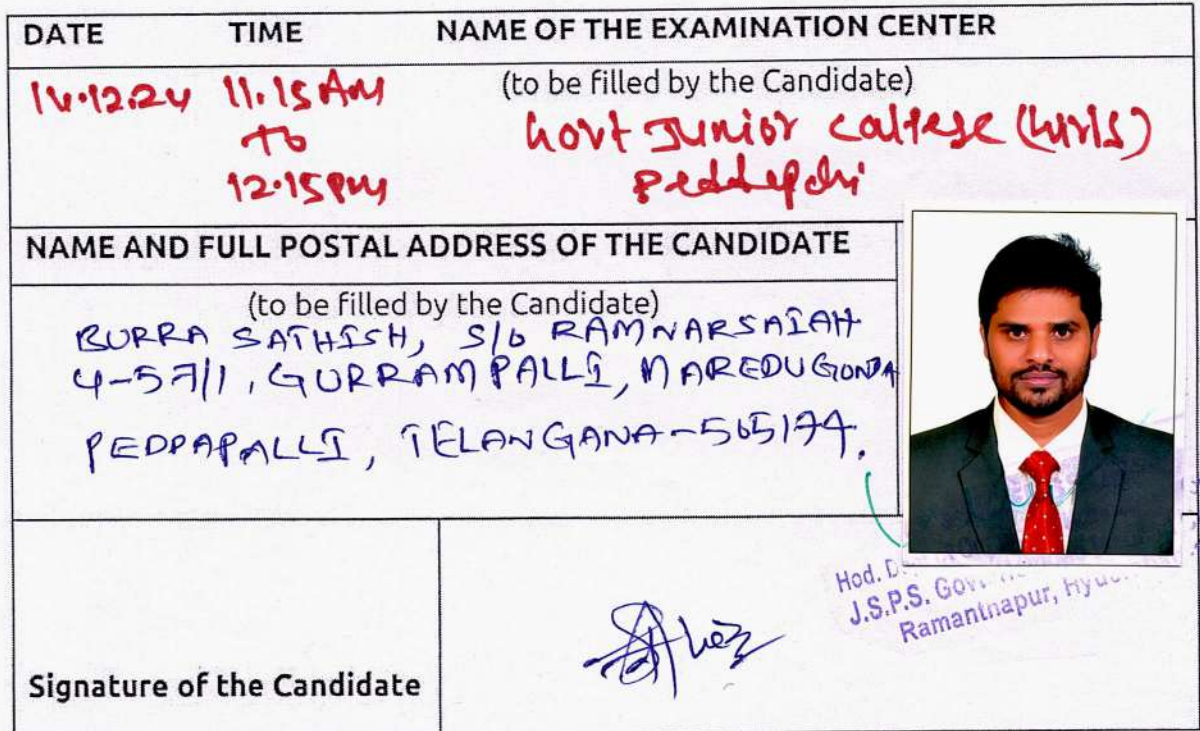 DATE TIME NAME OF THE EXAMINATION CENTER
(to be filled by the Candidate)
11.15 AM
Govt Junior College (Girls)
TO
12.15PM
NAME AND FULL POSTAL ADDRESS OF THE CANDIDATE
(to be filled by the Candidate)
BURRA SATHISH, S/o RAMNARSAIAH
4-57/1, GURRAMPALLI, MAREDUGONDA
PEDDAPALLI, TELANGANA-505174.
Hod.
J.S.P.S.
Ramantnapur,
Signature of the Candidate